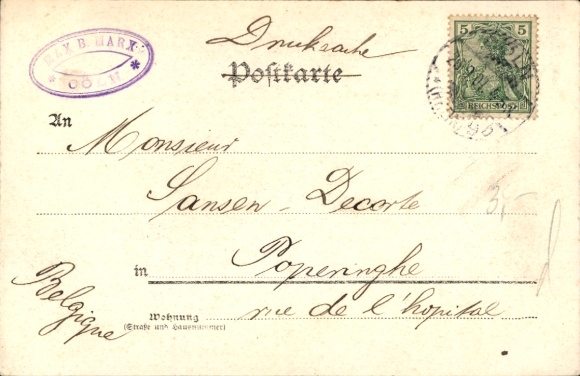 MAX B. MARX
CÖLN
Drucksache
Postkarte
5 5
REICHSPOST
An
Monsieur
Sansen-Decorte
3,-
in Poperinghe
Belgique
Wohnung
(Straße und Hausnummer)
rue de l'hopital